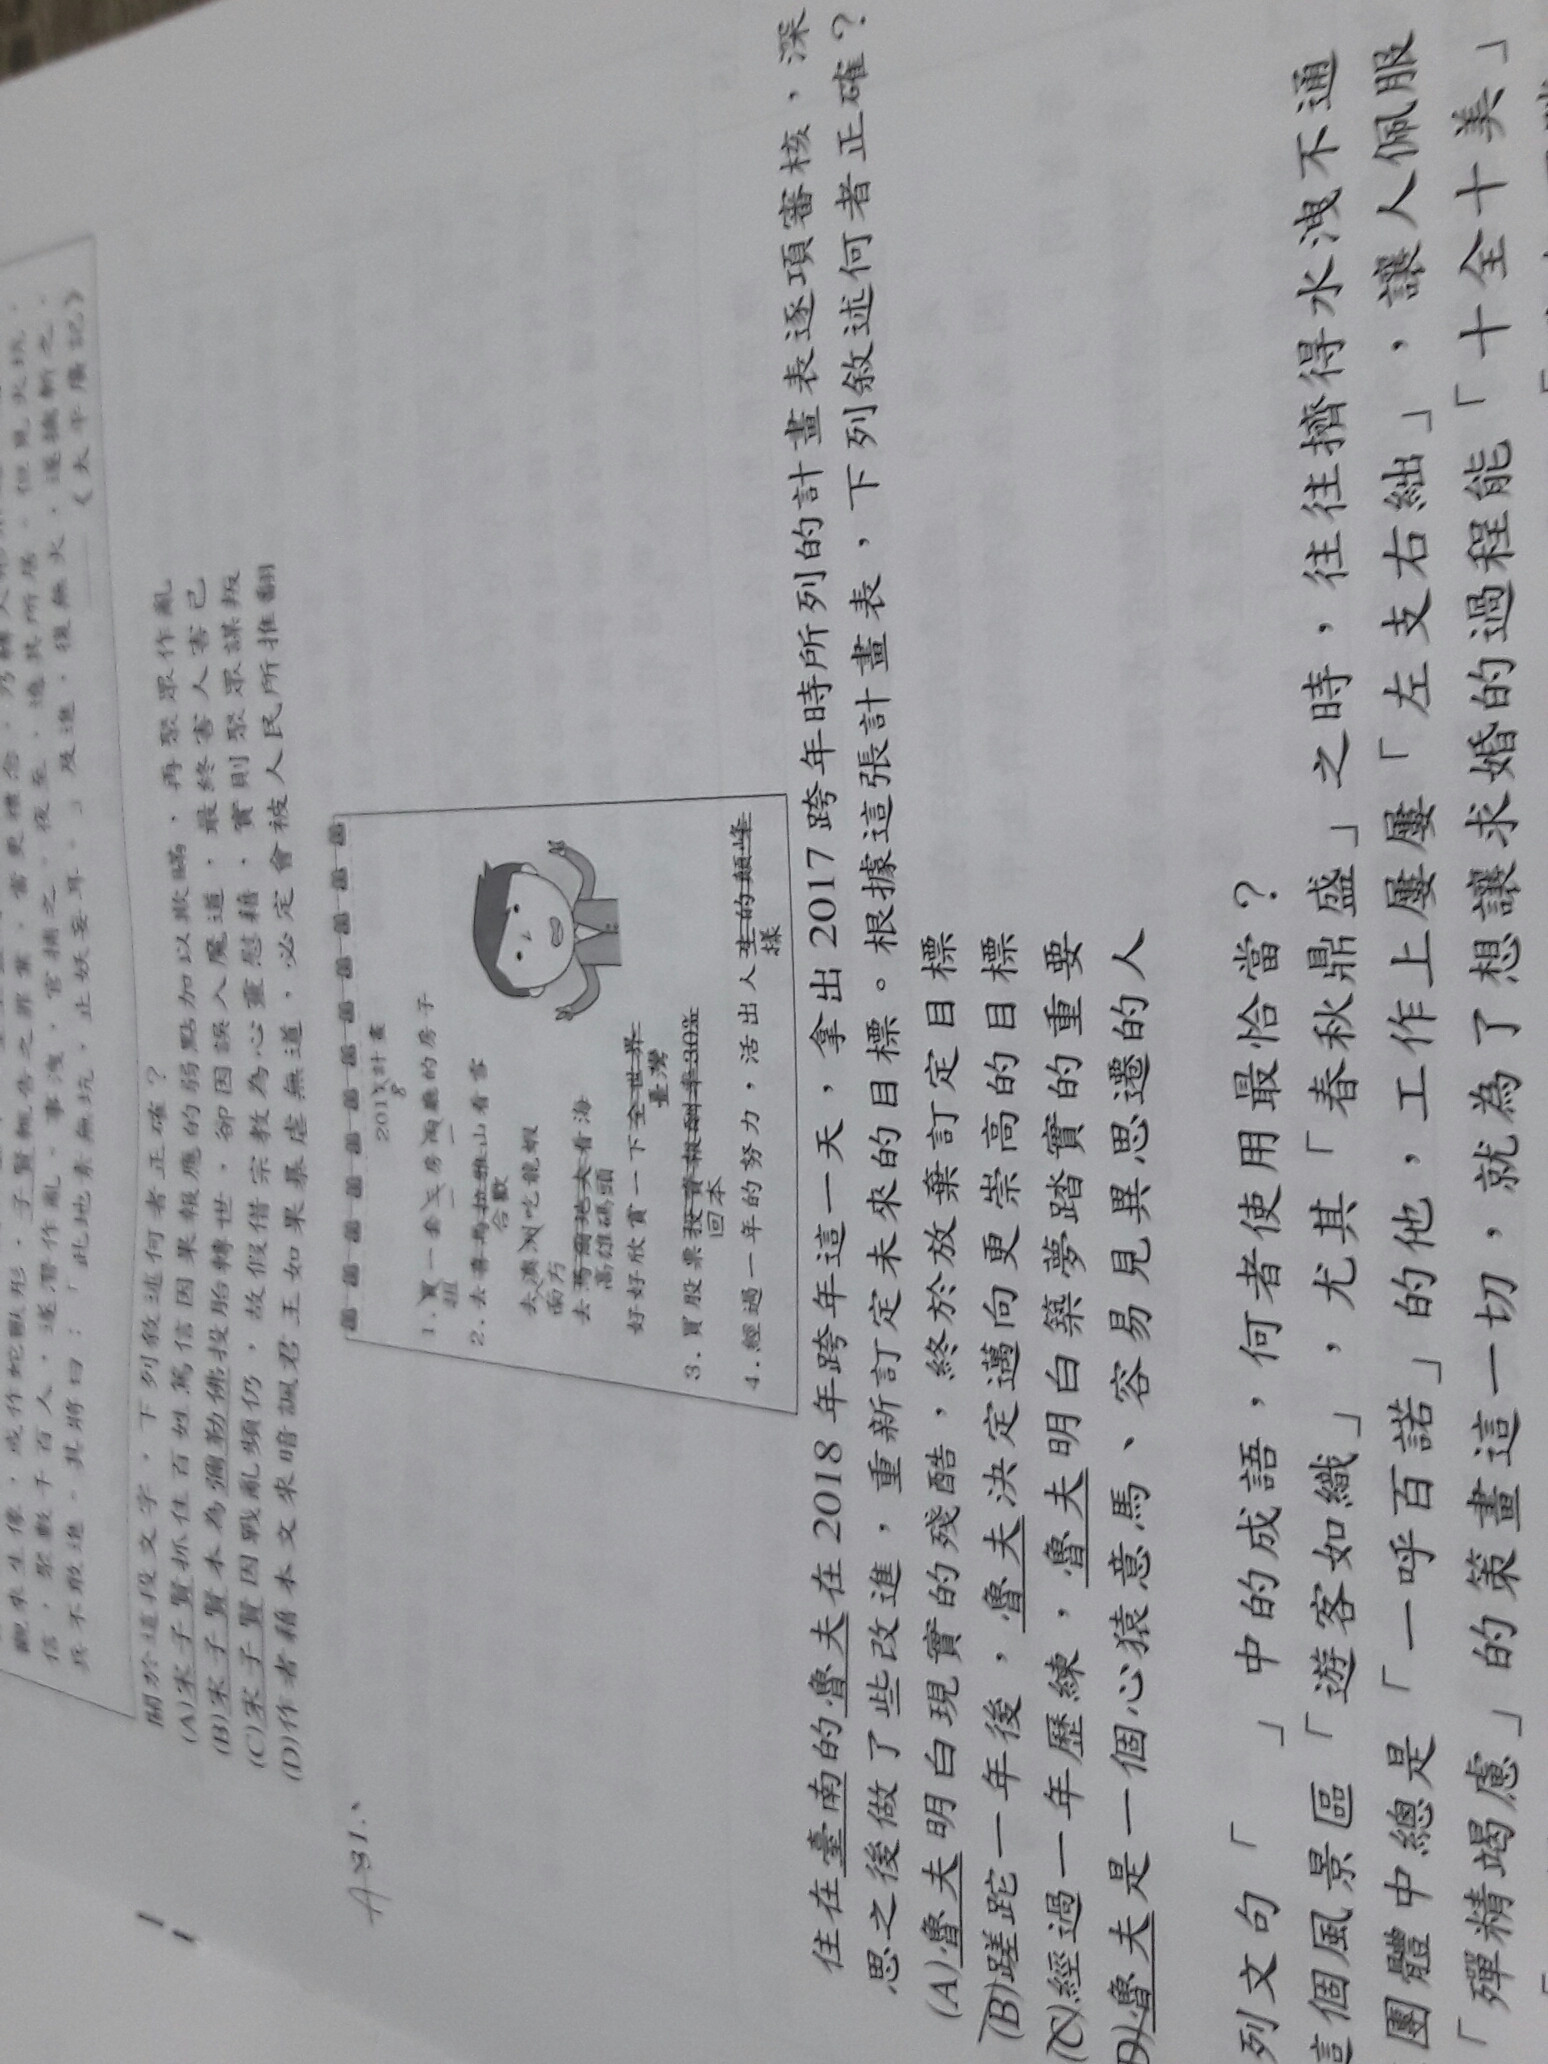 信，聚數千百人，遂潛作亂。事洩，官捕之，夜至，遶其所居，但見火坑，
兵不敢進。其將曰：「此地素無坑，止妖妄耳。」及進，復無火，遂擒斬之。
《太平廣記》
關於這段文字，下列敘述何者正確？
(A)宋子賢抓住百姓篤信因果報應的弱點加以欺瞞，再聚眾作亂
(B)宋子賢本為彌勒佛投胎轉世，卻因誤入魔道，最終害人害己
(C)宋子賢因戰亂頻仍，故假借宗教為心靈慰藉，實則聚眾謀叛
(D)作者藉本文來暗諷君王如果暴虐無道，必定會被人民所推翻
A 31、
2017計畫
8
1.買一套三房兩廳的房子
租 一 一
2.去喜馬拉雅山看雪
合歡
去澳洲吃龍蝦
南方
去馬爾地夫看海
高雄碼頭
好好欣賞一下全世界
臺灣
3.買股票投資報酬率30%
回本
4.經過一年的努力，活出人生的顛峰
樣
住在臺南的魯夫在2018年跨年這一天，拿出2017跨年時所列的計畫表逐項審核，深
思之後做了些改進，重新訂定未來的目標。根據這張計畫表，下列敘述何者正確？
(A)魯夫明白現實的殘酷，終於放棄訂定目標
(B)蹉跎一年後，魯夫決定邁向更崇高的目標
(C)經過一年歷練，魯夫明白築夢踏實的重要
(D)魯夫是一個心猿意馬、容易見異思遷的人
列文句「 」中的成語，何者使用最恰當？
這個風景區「遊客如織」，尤其「春秋鼎盛」之時，往往擠得水洩不通
團體中總是「一呼百諾」的他，工作上屢屢「左支右絀」，讓人佩服
「殫精竭慮」的策畫這一切，就為了想讓求婚的過程能「十全十美」